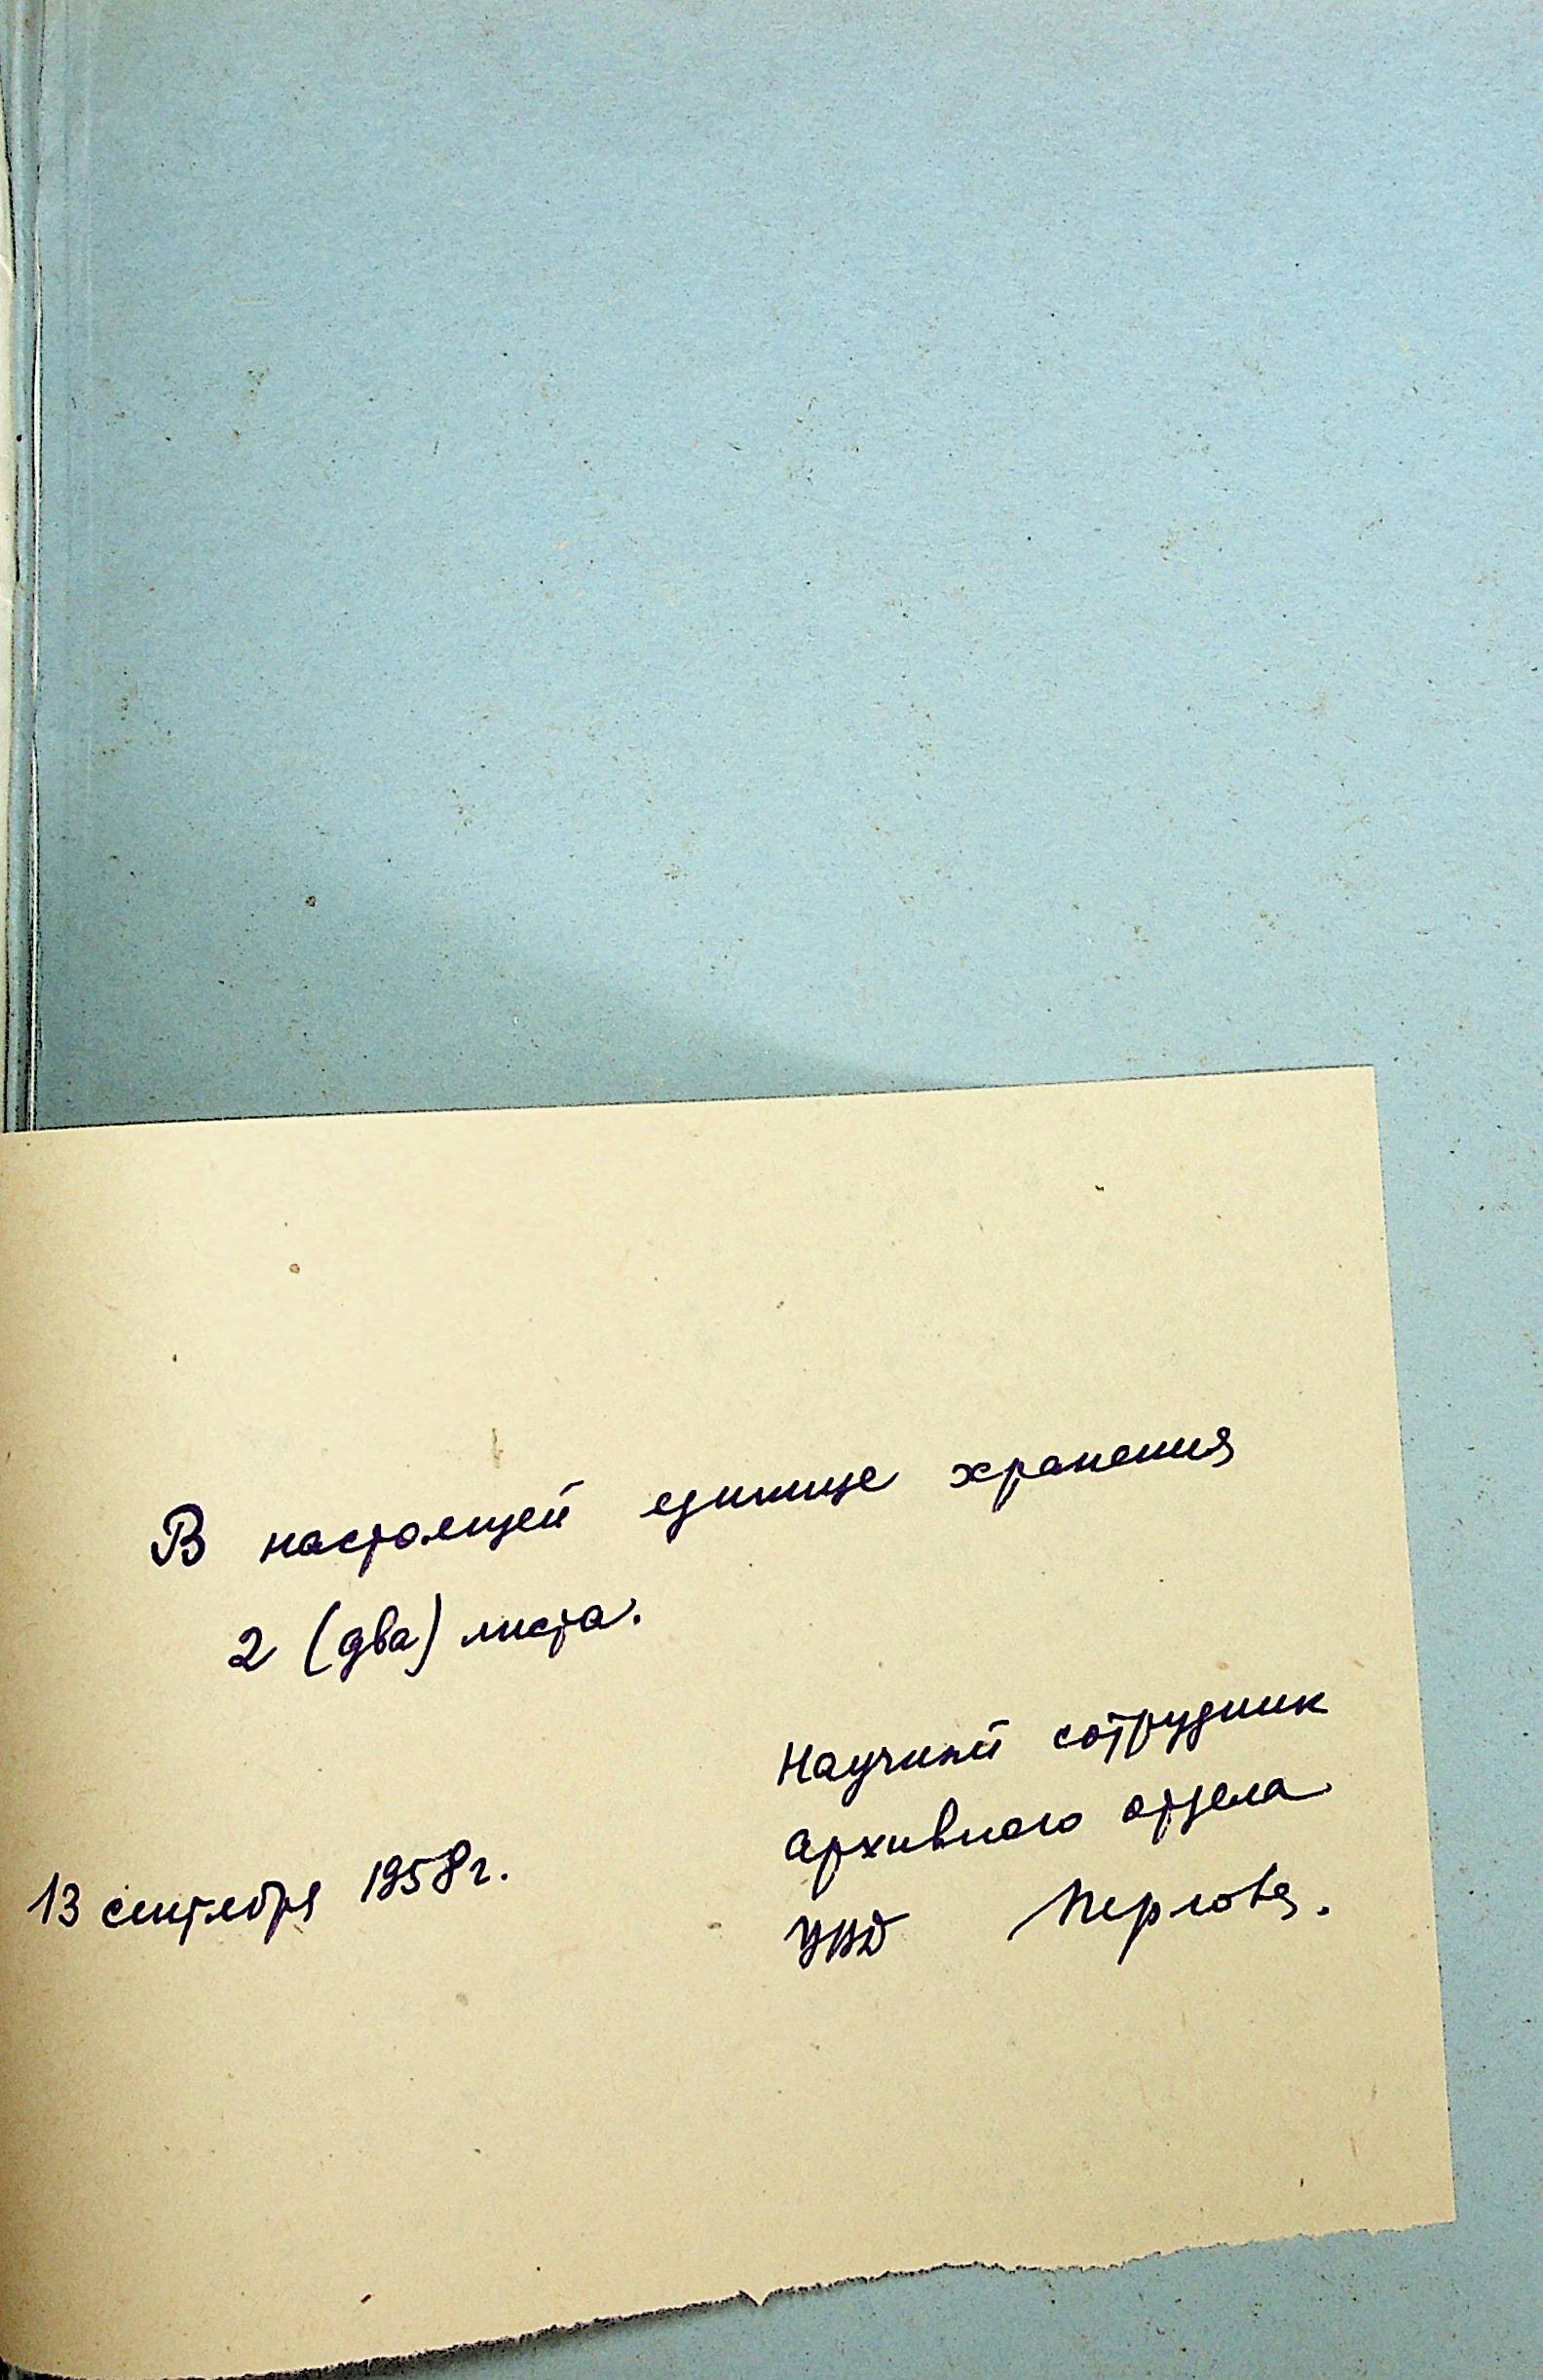 В настоящей единице хранения
2 (два) листа.
Научный сотрудник
архивного отдела
13 сентября 1958 г.
УВД Перлова.